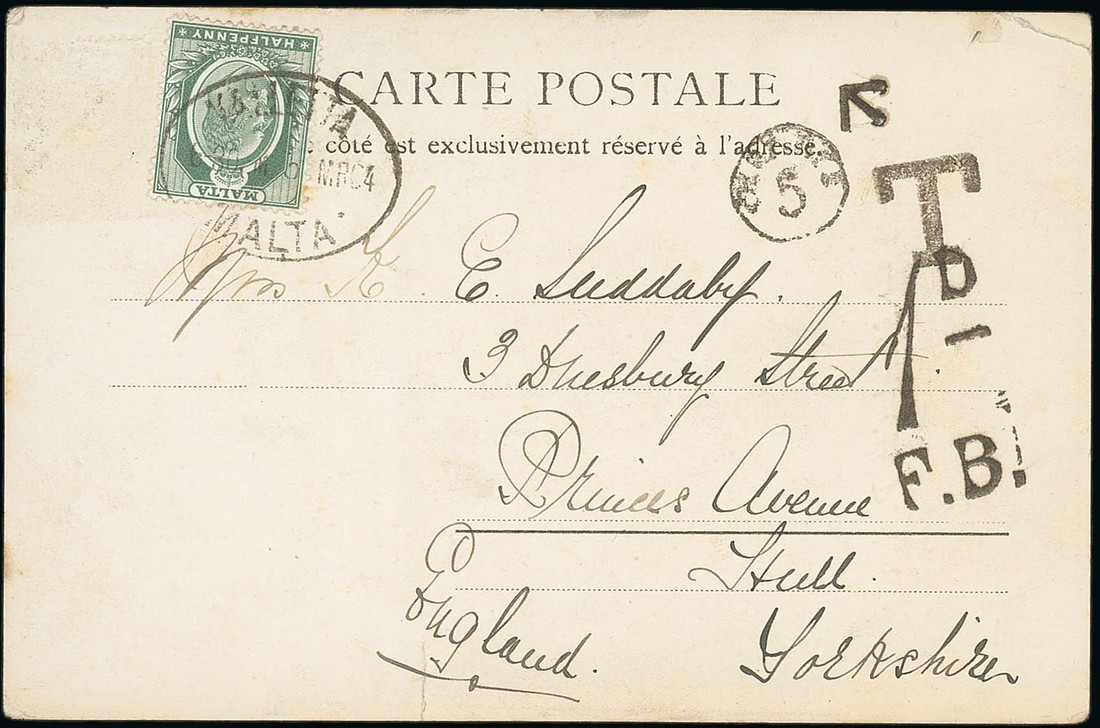 HALFPENNY
MALTA
VALLETTA
MR 04
MALTA
CARTE POSTALE
côté est exclusivement réservé à l'adresse.
5
T
1D
F.B.
E. Suddaby.
3 Duesbury Street.
Princes Avenue
Hull.
England.
Yorkshire